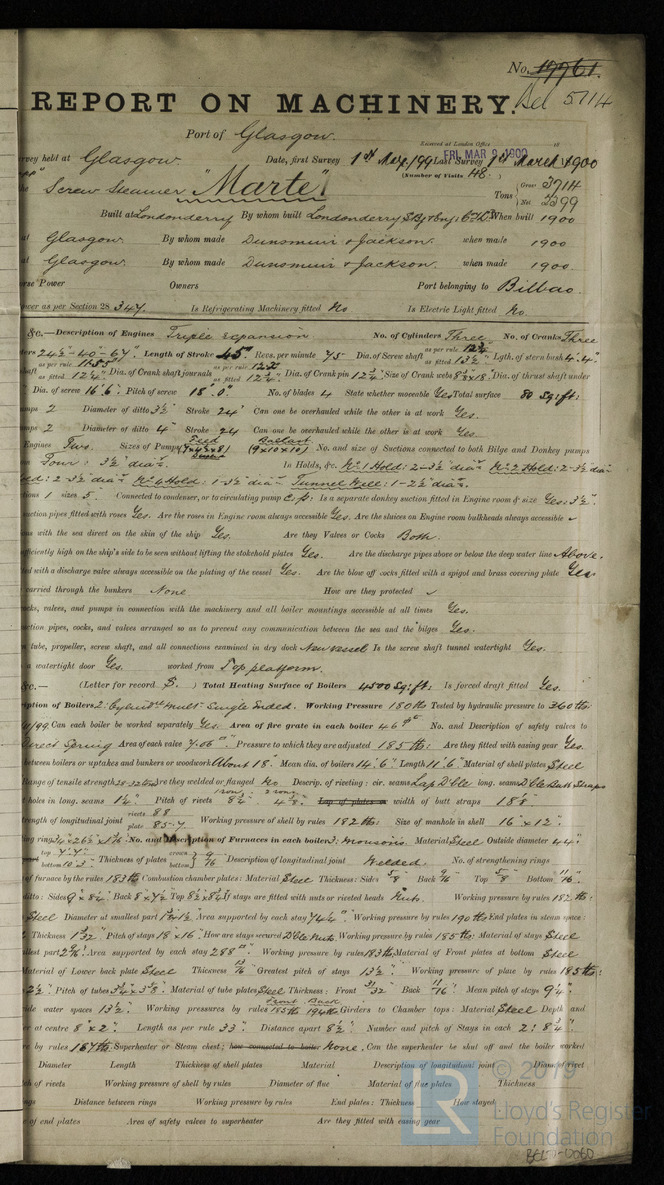 No. 19961.
REPORT ON MACHINERY.
Bel 5714
Port of Glasgow.
Received at London Office
FRI. MAR 9 1900
rvey held at Glasgow. Date, first Survey 1st Last Survey 1st March 1900
(Number of Visits 48.)
Screw Steamer "Marte" Tons { Gross 3714 Net 2399
Built at Londonderry By whom built Londonderry When built 1900
at Glasgow. By whom made Dunsmuir & Jackson. when made 1900
at Glasgow. By whom made Dunsmuir & Jackson. when made 1900.
rse Power Owners Port belonging to Bilbao.
ower as per Section 28 347. Is Refrigerating Machinery fitted No Is Electric Light fitted No.
&c.—Description of Engines Triple expansion No. of Cylinders Three No. of Cranks Three
ers 24½"-40"-67". Length of Stroke 45" Revs. per minute 75 Dia. of Screw shaft as per rule as fitted 13½" Lgth. of stern bush 4'.4"
haft as per rule 11.85 as fitted 12¼" Dia. of Crank shaft journals as per rule as fitted 12¾" Dia. of Crank pin 12¾" Size of Crank webs Dia. of thrust shaft under
Dia. of screw 16'.6" Pitch of screw 18'.0" No. of blades 4 State whether moveable Yes Total surface 80 sq: ft:
mps 2 Diameter of ditto 3½" Stroke 24" Can one be overhauled while the other is at work Yes.
mps 2 Diameter of ditto 4" Stroke 24 Can one be overhauled while the other is at work Yes.
Engines Two. Sizes of Pumps Feed Ballast (9x10x10) No. and size of Suctions connected to both Bilge and Donkey pumps
Four: 3½" dia. In Holds, &c. No 1 Hold: 2-3½" dia No 2 Hold: 2-3½" dia
2-3½" dia No 4 Hold: 1-3½" dia Tunnel Well: 1-2½" dia.
tions 1 sizes 5" Connected to condenser, or to circulating pump C.P: Is a separate donkey suction fitted in Engine room & size Yes: 3½".
uction pipes fitted with roses Yes. Are the roses in Engine room always accessible Yes. Are the sluices on Engine room bulkheads always accessible ✓
ons with the sea direct on the skin of the ship Yes. Are they Valves or Cocks Both.
fficiently high on the ship's side to be seen without lifting the stokehold plates Yes. Are the discharge pipes above or below the deep water line Above.
ed with a discharge valve always accessible on the plating of the vessel Yes. Are the blow off cocks fitted with a spigot and brass covering plate Yes
carried through the bunkers None How are they protected ✓
ocks, valves, and pumps in connection with the machinery and all boiler mountings accessible at all times Yes.
ction pipes, cocks, and valves arranged so as to prevent any communication between the sea and the bilges Yes.
n tube, propeller, screw shaft, and all connections examined in dry dock New vessel Is the screw shaft tunnel watertight Yes.
a watertight door Yes. worked from Top platform.
&c.— (Letter for record S.) Total Heating Surface of Boilers 4500 Sq: ft: Is forced draft fitted Yes.
iption of Boilers 2: Cylind. Mult. Single Ended. Working Pressure 180 lbs Tested by hydraulic pressure to 360 lbs:
11/99. Can each boiler be worked separately Yes. Area of fire grate in each boiler 46 No. and Description of safety valves to
Direct Spring Area of each valve 7.06 Pressure to which they are adjusted 185 lbs: Are they fitted with easing gear Yes.
between boilers or uptakes and bunkers or woodwork About 18" Mean dia. of boilers 14'.6" Length 11'.6" Material of shell plates Steel
Range of tensile strength 28-32 tons Are they welded or flanged No Descrip. of riveting: cir. seams Lap D'ble long. seams D'ble Butt Straps
t holes in long. seams 1¼" Pitch of rivets Lap of plates or width of butt straps 18⅝"
rength of longitudinal joint rivets 88 plate 85.7 Working pressure of shell by rules 182 lbs: Size of manhole in shell 16"x12"
ing ring No. and Description of Furnaces in each boiler 3: Morison's Material Steel Outside diameter 44"
top bottom Thickness of plates crown bottom } 9/16 Description of longitudinal joint Welded. No. of strengthening rings
of furnace by the rules 183 lbs Combustion chamber plates: Material Steel Thickness: Sides ⅝" Back 9/16 Top ⅝" Bottom 11/16"
ditto: Sides Back 8"x7½" Top If stays are fitted with nuts or riveted heads Nuts. Working pressure by rules 182 lbs:
Steel Diameter at smallest part Area supported by each stay 74¼" Working pressure by rules 190 lbs End plates in steam space:
Thickness 1 3/32" Pitch of stays 18"x16" How are stays secured D'ble Nuts. Working pressure by rules 185 lbs: Material of stays Steel
llest part Area supported by each stay 288 Working pressure by rules 183 lbs Material of Front plates at bottom Steel
Material of Lower back plate Steel Thickness Greatest pitch of stays 13½" Working pressure of plate by rules 185 lbs:
2½" Pitch of tubes Material of tube plates Steel Thickness: Front 31/32" Back 11/16" Mean pitch of stays 9¼"
ide water spaces 13½" Working pressures by rules Front 185 lbs Back 194 lbs Girders to Chamber tops: Material Steel Depth and
er at centre 8"x2" Length as per rule 33" Distance apart 8½" Number and pitch of Stays in each 2: 8¾"
re by rules 187 lbs Superheater or Steam chest; how connected to boiler None. Can the superheater be shut off and the boiler worked
Diameter Length Thickness of shell plates Material Description of longitudinal joint Diam. of rivet
tch of rivets Working pressure of shell by rules Diameter of flue Material of flue plates Thickness
ngs Distance between rings Working pressure by rules End plates: Thickness How stayed
e of end plates Area of safety valves to superheater Are they fitted with easing gear
LR © 2019
Lloyd's Register
Foundation